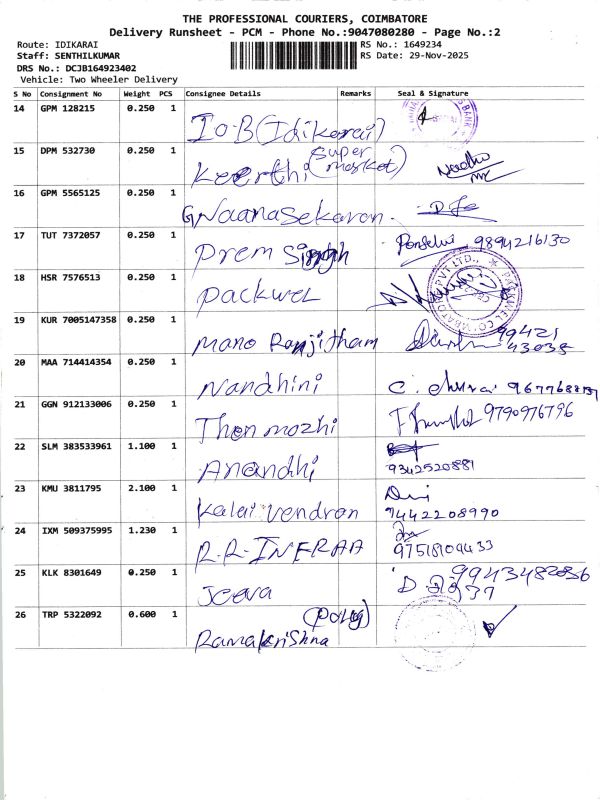 THE PROFESSIONAL COURIERS, COIMBATORE
Delivery Runsheet - PCM - Phone No.:9047080280 - Page No.:2
Route: IDIKARAI RS No.: 1649234
Staff: SENTHILKUMAR RS Date: 29-Nov-2025
DRS No.: DCJB164923402
Vehicle: Two Wheeler Delivery
S No Consignment No Weight PCS Consignee Details Remarks Seal & Signature
14 GPM 128215 0.250 1 I.O.B (Idikarai)
15 DPM 532730 0.250 1 Keerthi (super market)
16 GPM 5565125 0.250 1 GNaanasekaran.
17 TUT 7372057 0.250 1 Prem Singh Ponselvi 9894216130
18 HSR 7576513 0.250 1 Packwel
PACKWEL COIMBATORE PVT LTD.,
19 KUR 7005147358 0.250 1 Mano Ranjitham 99421 43035
20 MAA 714414354 0.250 1 Nandhini
21 GGN 912133006 0.250 1 Then mozhi 9790976796
22 SLM 383533961 1.100 1 Anandhi 9342520881
23 KMU 3811795 2.100 1 Kalai vendran 9442208990
24 IXM 509375995 1.230 1 R.R-INFRAA
25 KLK 8301649 0.250 1 Jeeva
26 TRP 5322092 0.600 1 Ramakrishna